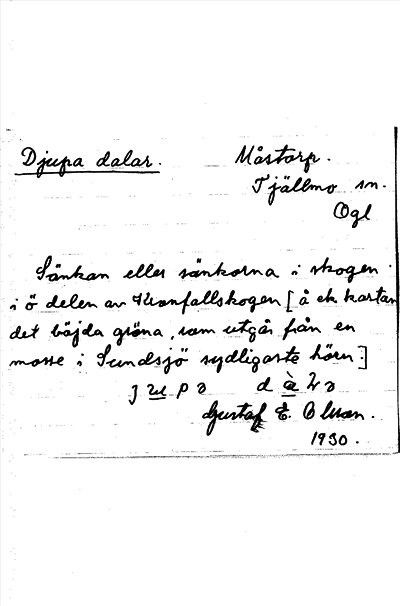 Djupa dalar.
Måstorp.
Tjällmo sn.
Ögl
Sänkan eller sänkorna i skogen
i ö delen av Kronfallskogen [å ek kartan
det böjda gröna, som utgår från en
mosse i Sundsjö sydligaste hörn.]
Gustaf E. Olsson.
1930.